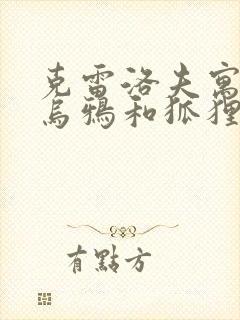 克雷洛夫寓
烏鴉和狐狸
有點方